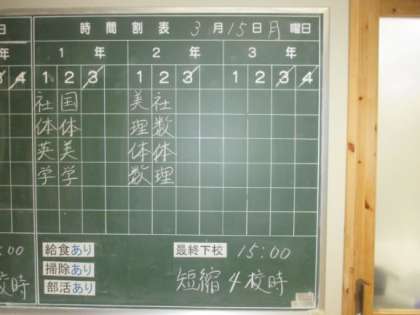 日 時間割表 3月15日月曜日
年 1年 2年 3年
3 4 1 2 3 1 2 3 1 2 3 4
社 国 美 社
体 体 理 数
英 美 体 体
学 学 数 理
:00 給食あり 最終下校 15:00
掃除あり
校時 部活あり 短縮4校時